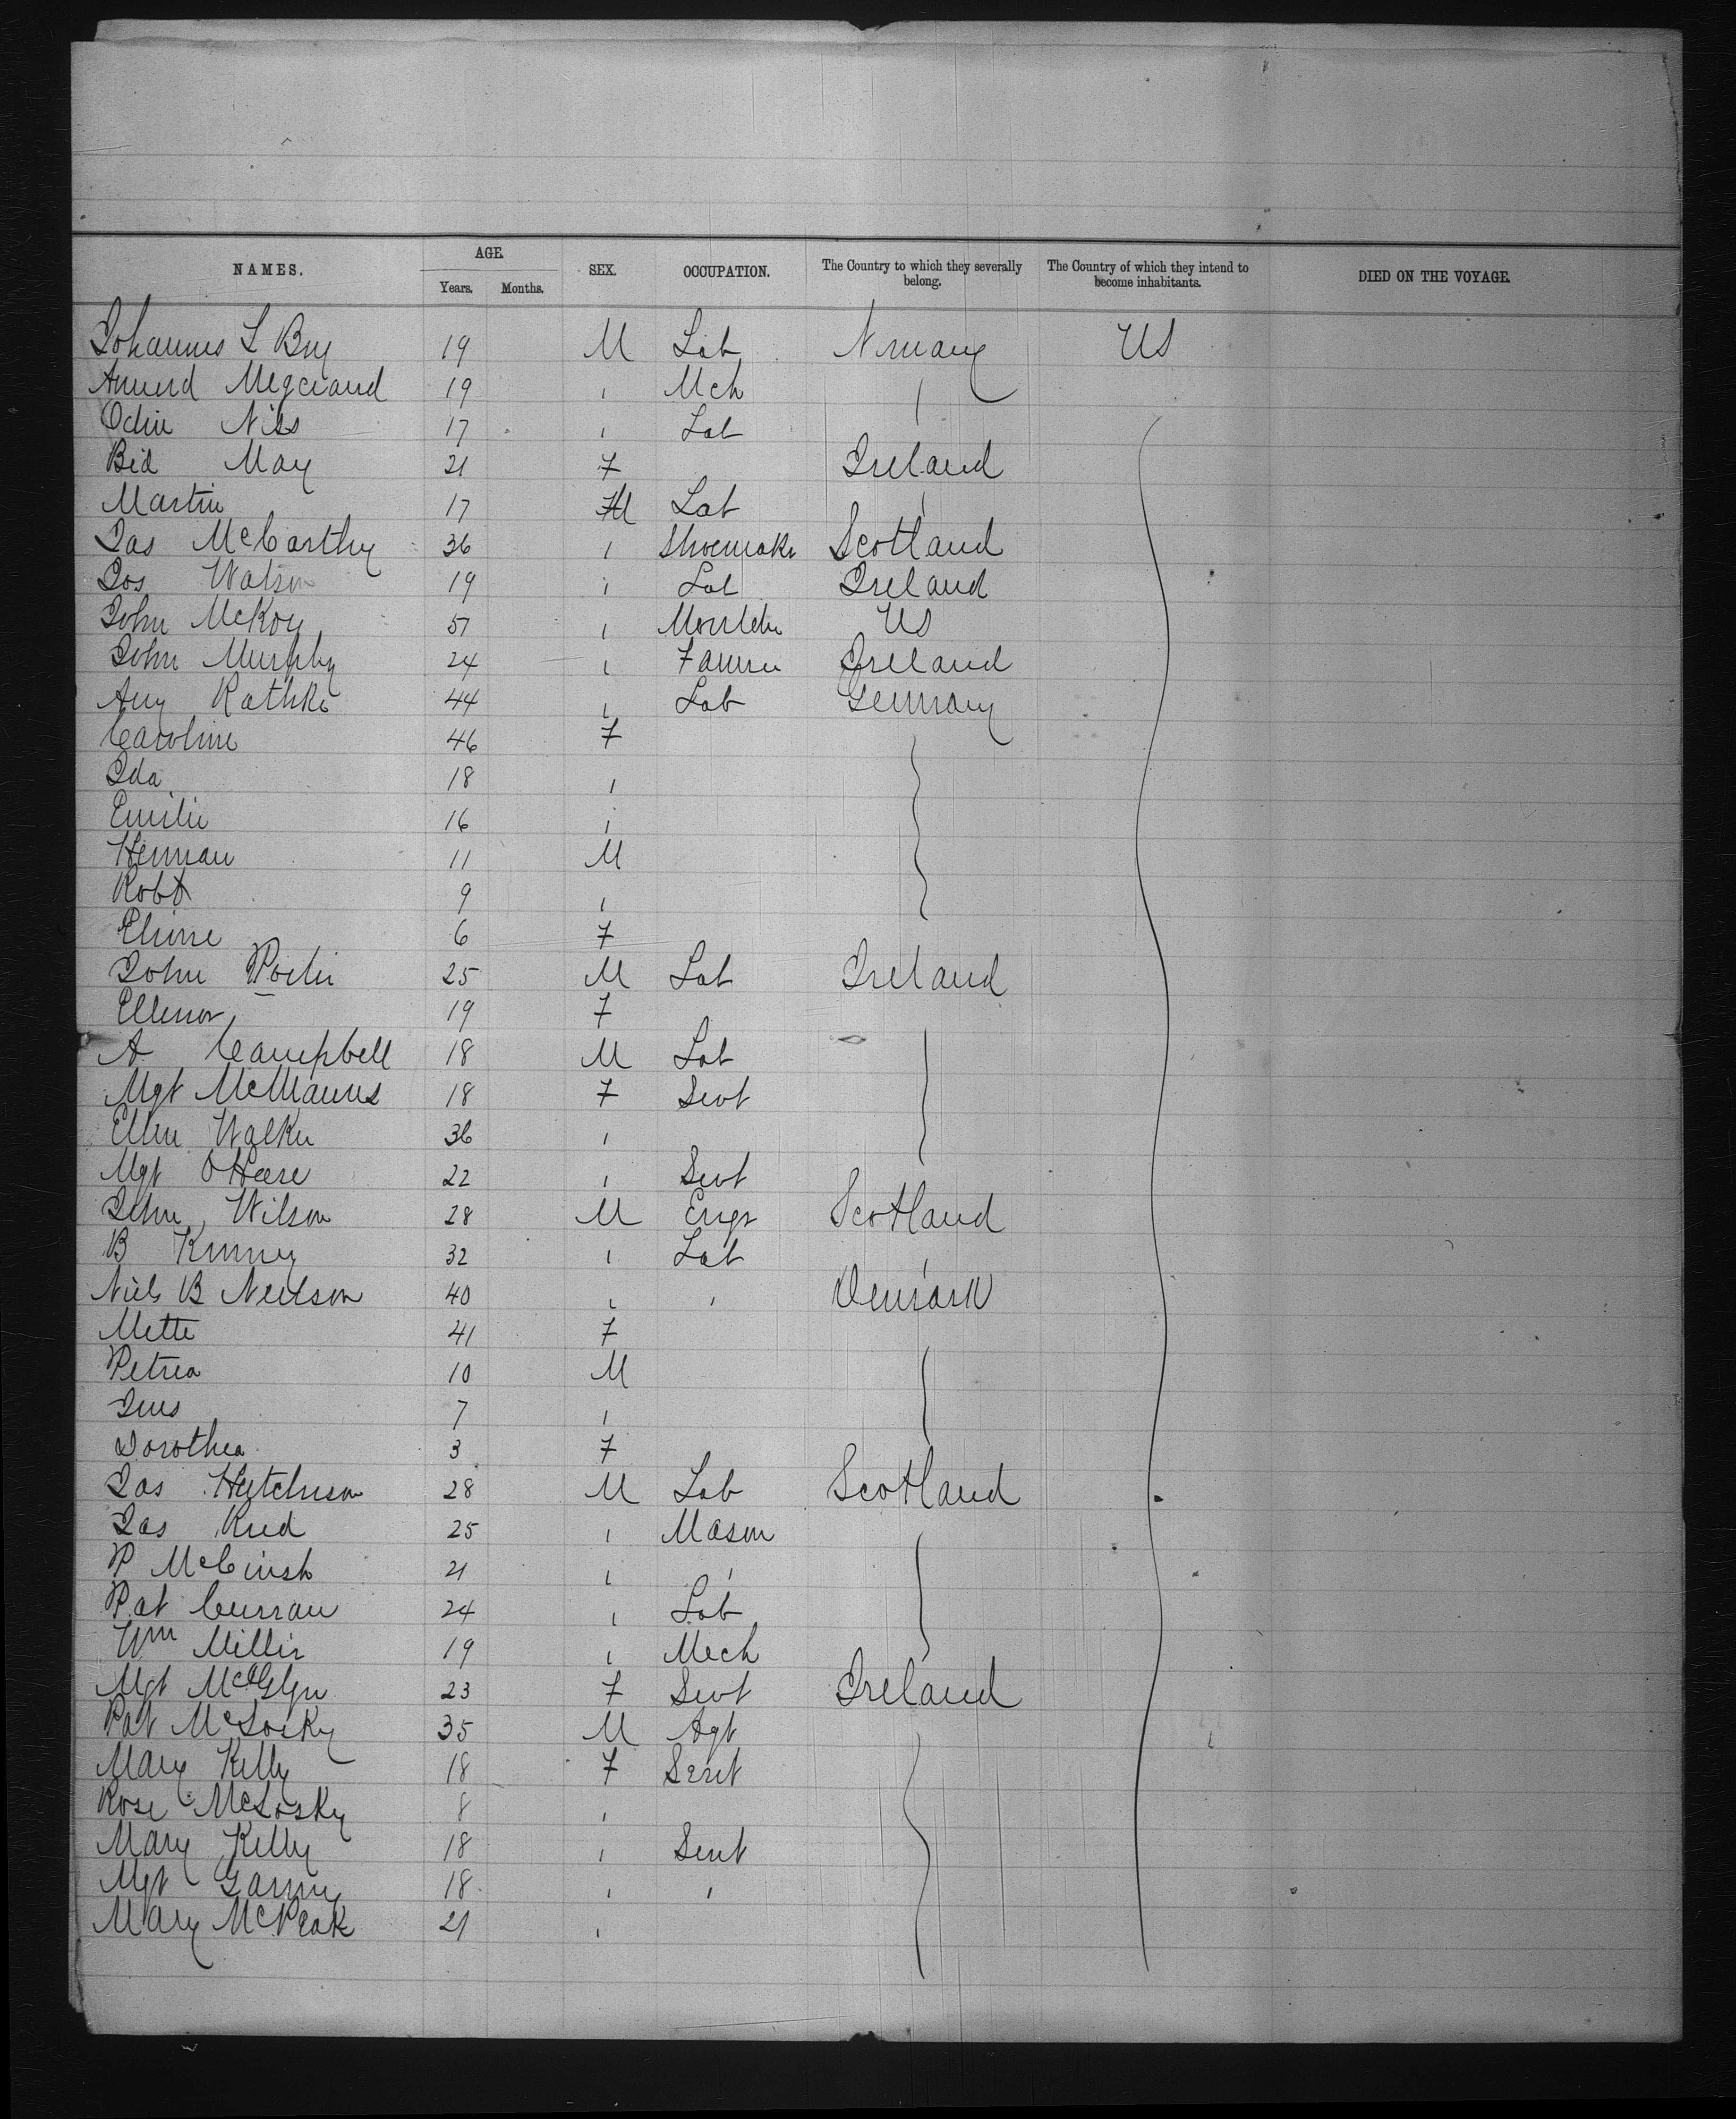 NAMES. AGE. Years. Months. SEX. OCCUPATION. The Country to which they severally belong. The Country of which they intend to become inhabitants. DIED ON THE VOYAGE.
Johannes L 19 M Lab Norway US
19 " Mch "
Odin Nils 17 " Lab
Bid May 21 F Ireland
Martin 17 M Lab "
Jas McCarthy 36 " Shoemaker Scotland
Jos Watson 19 " Lab Ireland
John McKoy 57 " Moulder US
John Murphy 24 " Farmer Ireland
Aug Rathke 44 " Lab Germany
Caroline 46 F
Ida 18 "
Emilie 16 "
Herman 11 M
Robt 9 "
6 F
John 25 M Lab Ireland
Ellenor 19 F
A Campbell 18 M Lab
Mgt McManus 18 F Servt
Ellen Walker 36 "
Mgt OHare 22 " Servt
John Wilson 28 M Engr Scotland
B 32 " Lab "
Niels B Neilson 40 " " Denmark
Mette 41 F
Petrea 10 M
Jens 7 "
Dorothea 3 F
Jas Hutchison 28 M Lab Scotland
Jas Reid 25 " Mason
P 21 " "
Pat Curran 24 " Lab
Wm Miller 19 " Mech
Mgt McGlyn 23 F Servt Ireland
Pat McLosky 35 M Agt
Mary Kelly 18 F Servt
Rose McLosky 8 "
Mary Kelly 18 " Servt
Mgt 18 " "
Mary McPeak 21 "